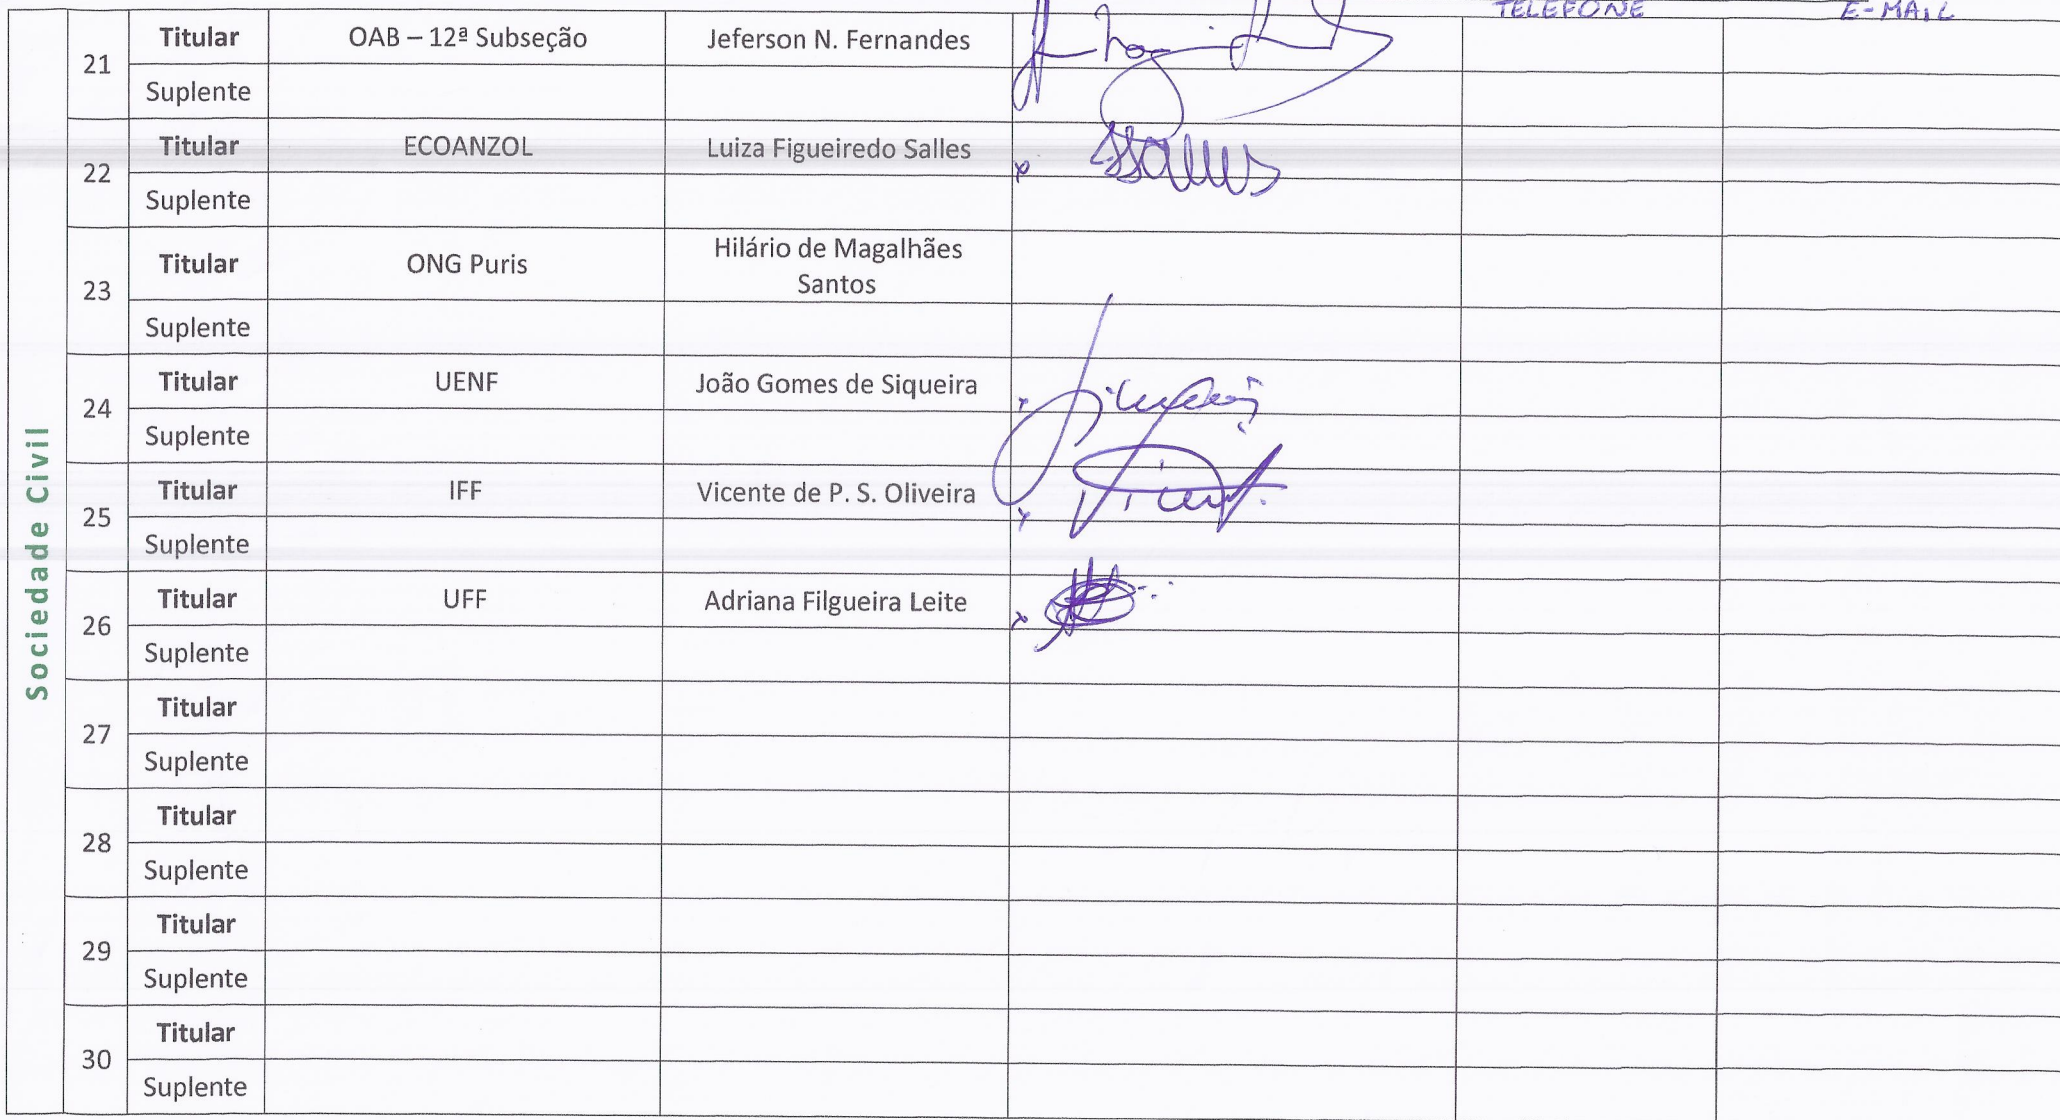 TELEFONE E-MAIL
Sociedade Civil
21 Titular OAB – 12ª Subseção Jeferson N. Fernandes
Suplente
22 Titular ECOANZOL Luiza Figueiredo Salles
Suplente
23 Titular ONG Puris Hilário de Magalhães
Santos
Suplente
24 Titular UENF João Gomes de Siqueira
Suplente
25 Titular IFF Vicente de P. S. Oliveira
Suplente
26 Titular UFF Adriana Filgueira Leite
Suplente
27 Titular
Suplente
28 Titular
Suplente
29 Titular
Suplente
30 Titular
Suplente